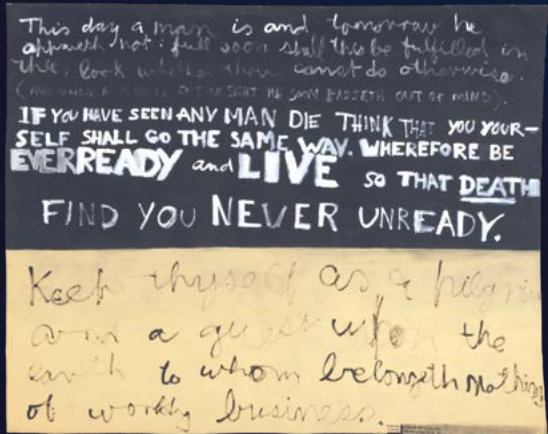 This day a man is and tomorrow he
appareth not: full soon shall this be fulfilled in
thee, look whether thou canst do otherwise.
(AND WHEN A MAN IS OUT OF SIGHT HE SOON PASSETH OUT OF MIND).
IF YOU HAVE SEEN ANY MAN DIE THINK THAT YOU YOUR-
SELF SHALL GO THE SAME WAY. WHEREFORE BE
EVERREADY and LIVE SO THAT DEATH
FIND YOU NEVER UNREADY.
Keep thyself as a pilgrim
and a guest upon the
earth to whom belongeth nothing
of worldly business.